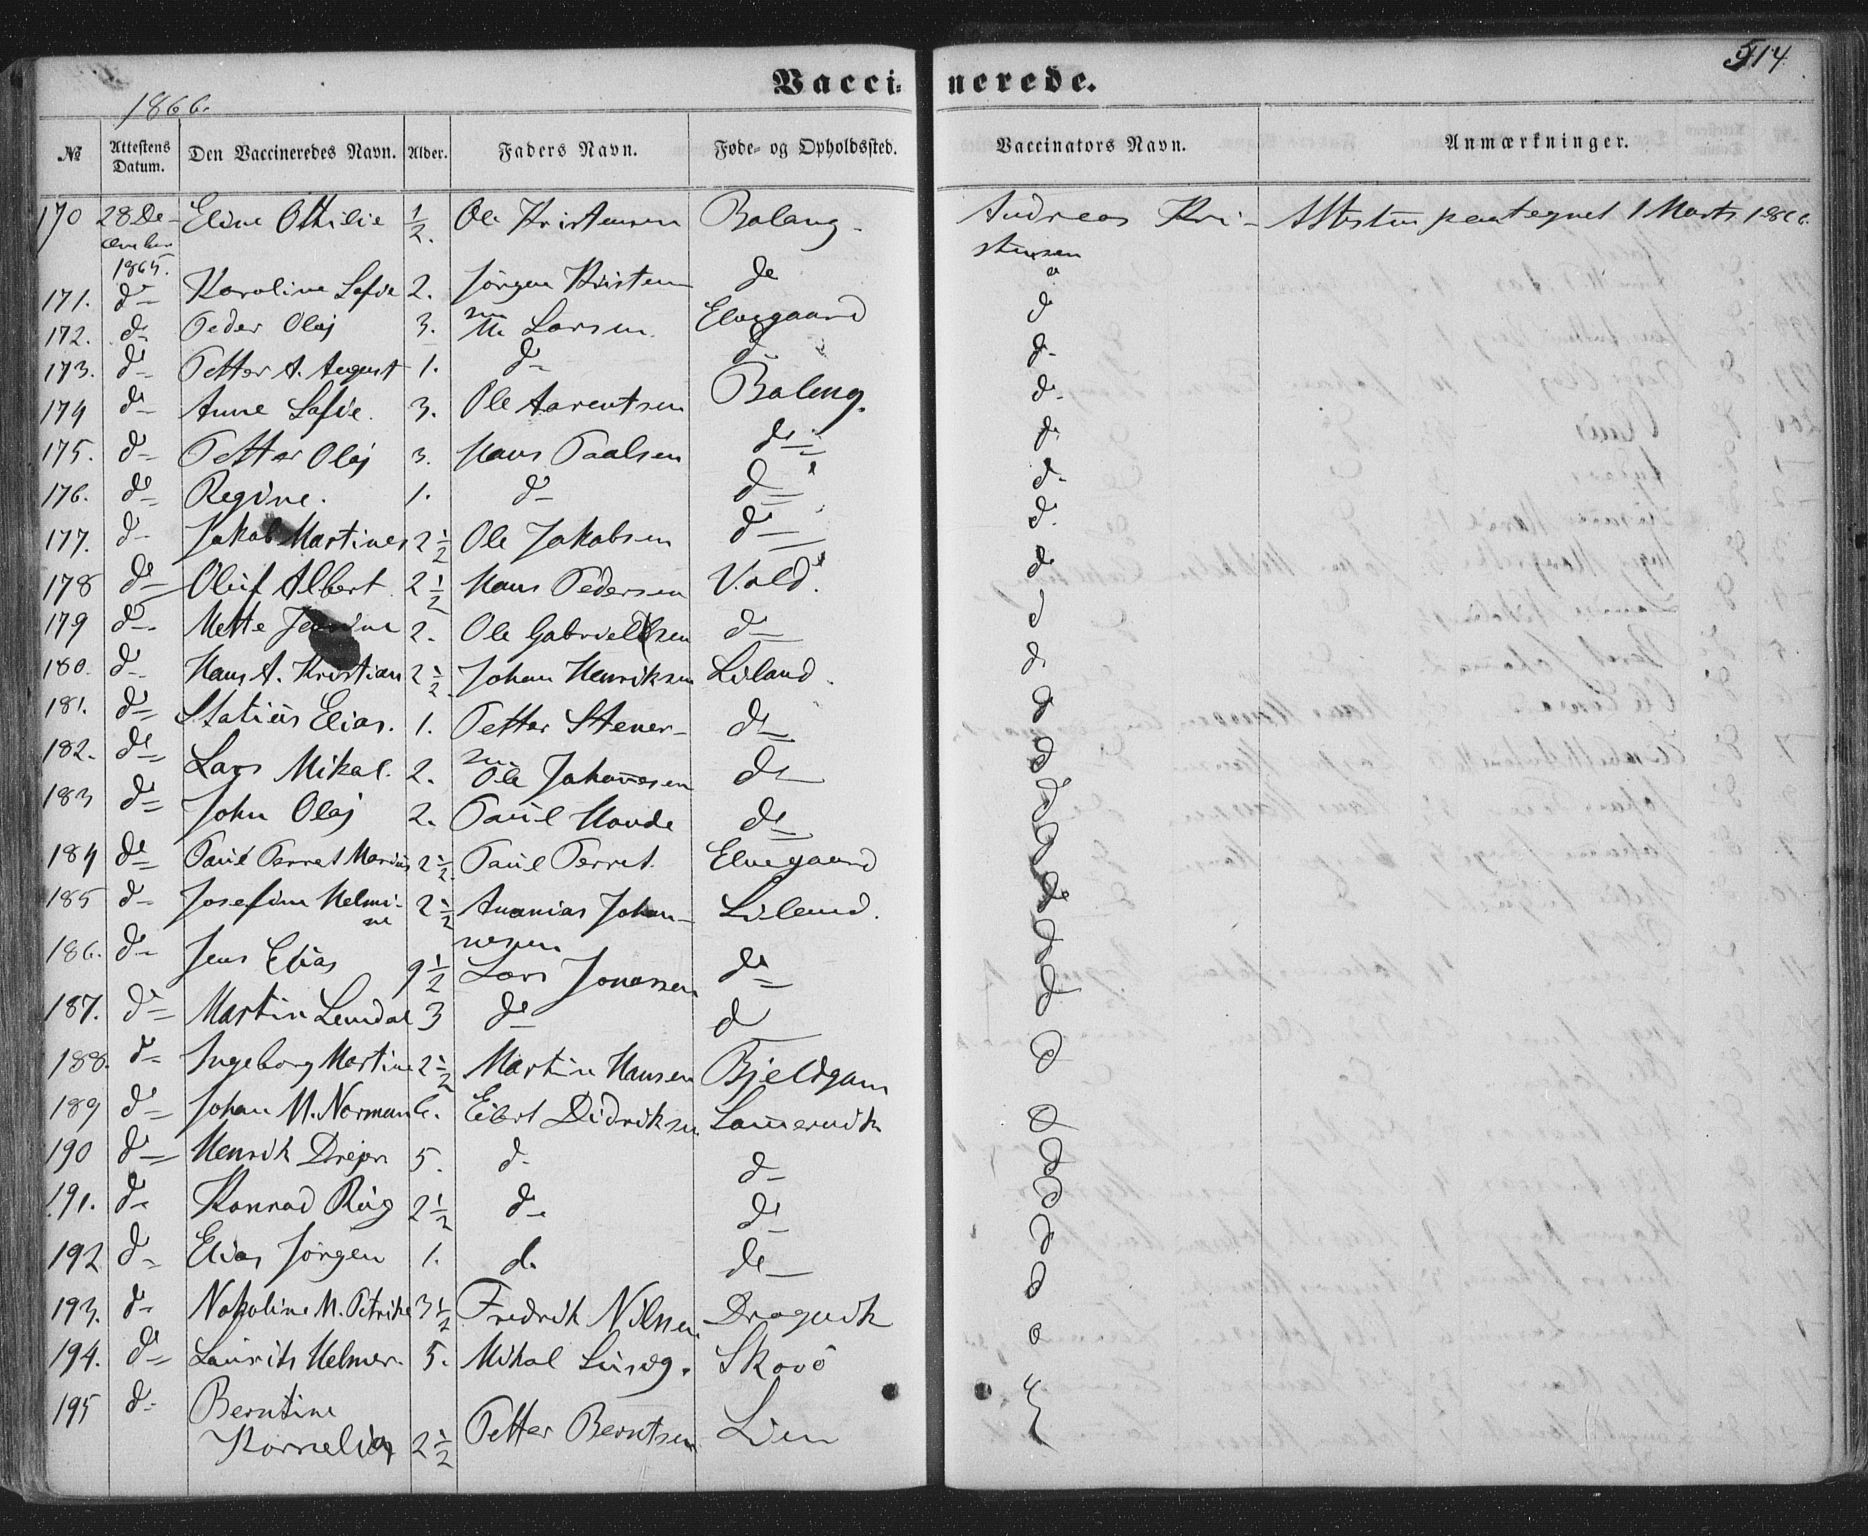 514
Vaccinerede.
1866.
№ Attestens Datum. Den Vaccineredes Navn. Alder. Faders Navn. Føde- og Opholdssted. Vaccinators Navn. Anmærkninger.
170 28 De- Eline Othilie 1/2. Ole Kristensen Balang. Andreas Kri- Attesten paategnet 1 Marts 1866.
cember stensen
1865.
171. do Karoline Sofie 2. Jørgen Kristen do d
172. do Peder Olaj 3. sen M. Larsen. Elvegaard d
173. do Petter A. August 1. do d d
174 do Anne Sofie. 3. Ole Aarentsen Balang. d
175. do Petter Olaj 3. Hans Paalsen do d
176. do Regine. 1. do do d
177. do Jakob Martines 2 1/2 Ole Jakobsen do d
178 do Oluf Albert 2 1/2 Hans Pedersen Vold. d
179 do Mette 2. Ole Gabrielsen do d
180. do Hans A. Kristian 2 1/2 Johan Henriksen Liland. d
181. do Statius Elias. 1. Petter Stener- do d
182. do Lars Mikal. 2. sen Ole Johannesen do d
183 do John Olaj 2. Paul Hande do d
184 do Paul Perret Marius 2 1/2 Paul Perret. Elvegaard d
185 do Josefine Helmi- 2 1/2 Ananias Johan- Liland. d
ne nesen
186. do Jens Elias 9 1/2 Lars Jonassen do d
187. do Martin Lendal 3 do d d
188. do Ingeborg Martine 2 1/2 Martin Hansen Bjeldgam d
189 do Johan M. Norman 6. Eibert Didriksen Lamervik d
190 do Henrik Drejer 5. d. d d
191. do Konrad Riig 2 1/2 d. do d
192 do Elias Jørgen 1. d. do d
193. do Nakoline M. Petrike 3 1/2 Fredrik Nilsen Dragvik d
194. do Laurits Helmer. 5. Mikal Ludvig. Skovö
195 do Berntine
Kornelia 2 1/2 Petter Berntsen Lien